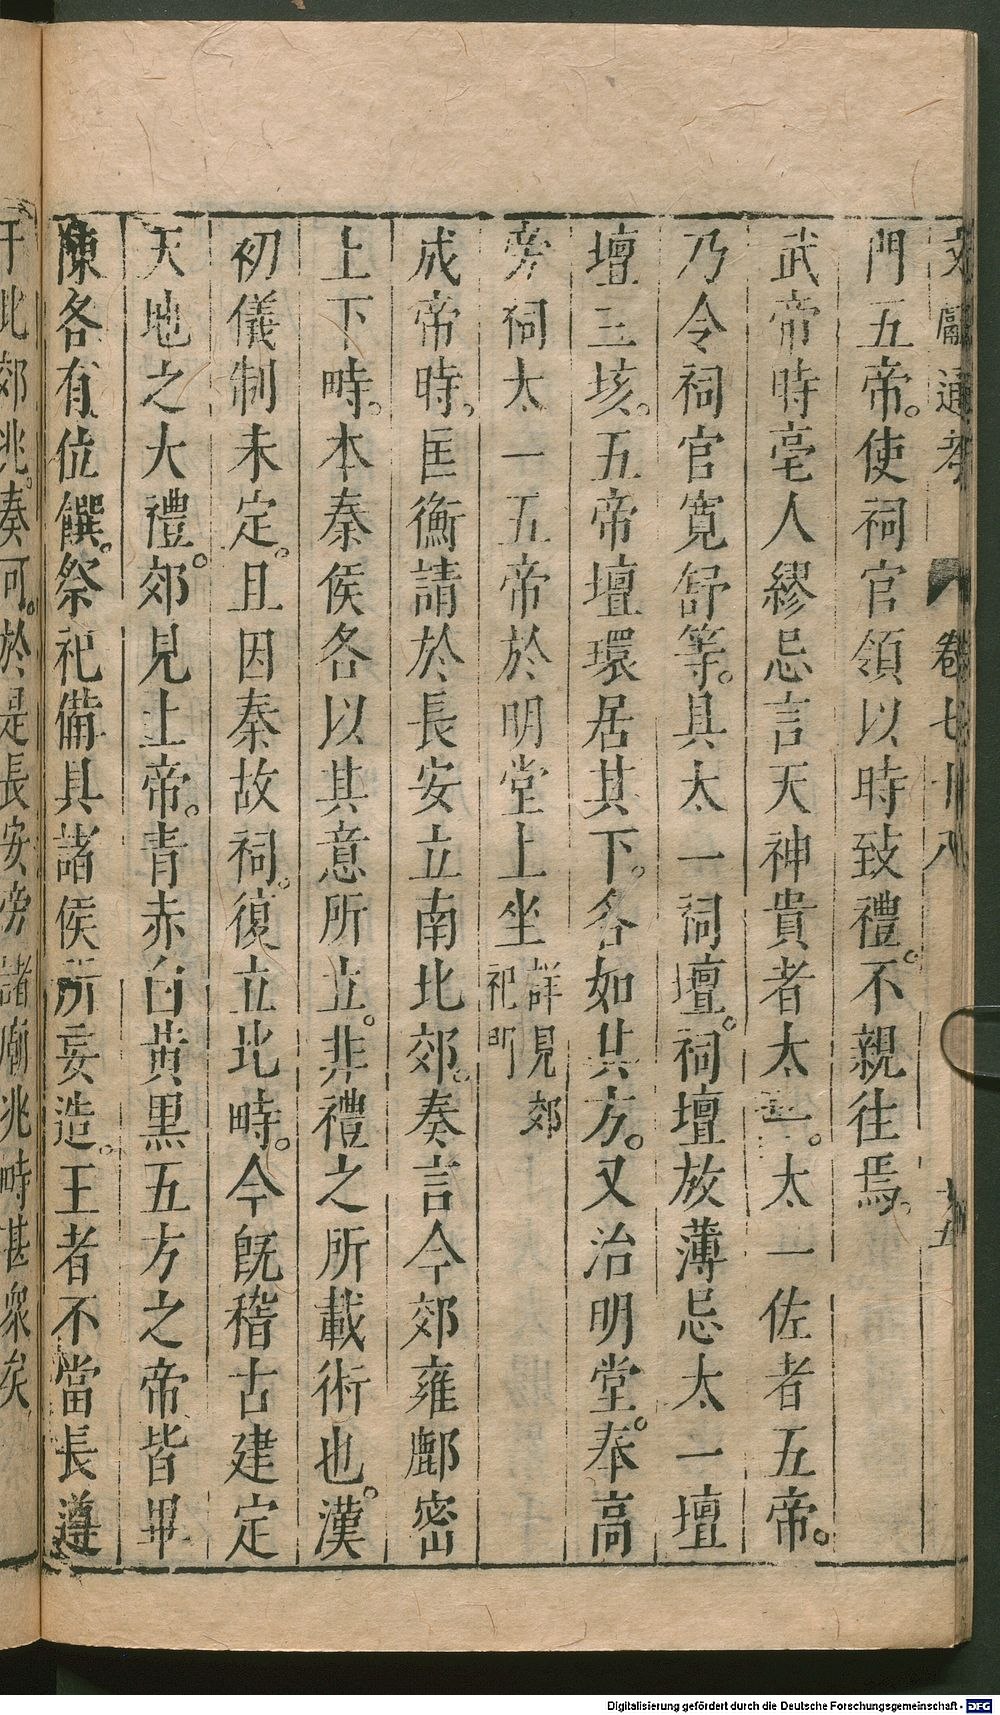 文獻通考 卷七十八 十五
門五帝。使祠官領以時致禮。不親往焉。
武帝時亳人繆忌言天神貴者太一。太一佐者五帝。
乃令祠官寬舒等。具太一祠壇。祠壇放薄忌太一壇
壇三垓。五帝壇環居其下。各如其方。又治明堂。奉高
旁祠太一五帝於明堂上坐 詳見郊祀明
成帝時。匡衡請於長安立南北郊。奏言今郊雍鄜密
上下畤。本秦侯各以其意所立。非禮之所載術也。漢
初儀制未定。且因秦故祠。復立北畤。今既稽古建定
天地之大禮。郊見上帝。青赤白黃黑五方之帝皆畢
陳各有位饌。祭祀備具諸侯所妄造。王者不當長遵
于北郊兆。奏可。於是長安旁諸廟兆畤甚衆矣
Digitalisierung gefördert durch die Deutsche Forschungsgemeinschaft - DFG